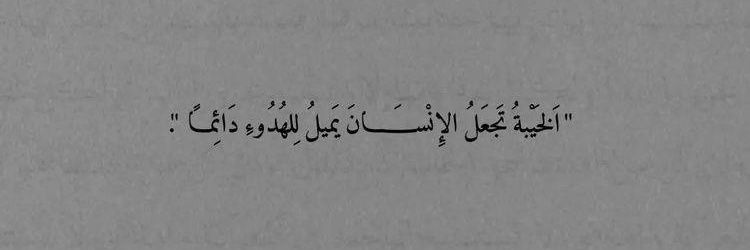 " اَلخَيْبةُ تَجعَلُ الإِنْســـــَــانَ يَميلُ لِلهُدُوءِ دَائِمـاً ".